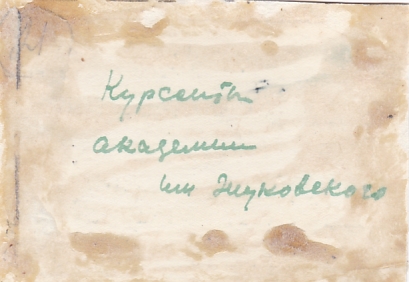 Курсанты
академии
им Жуковского